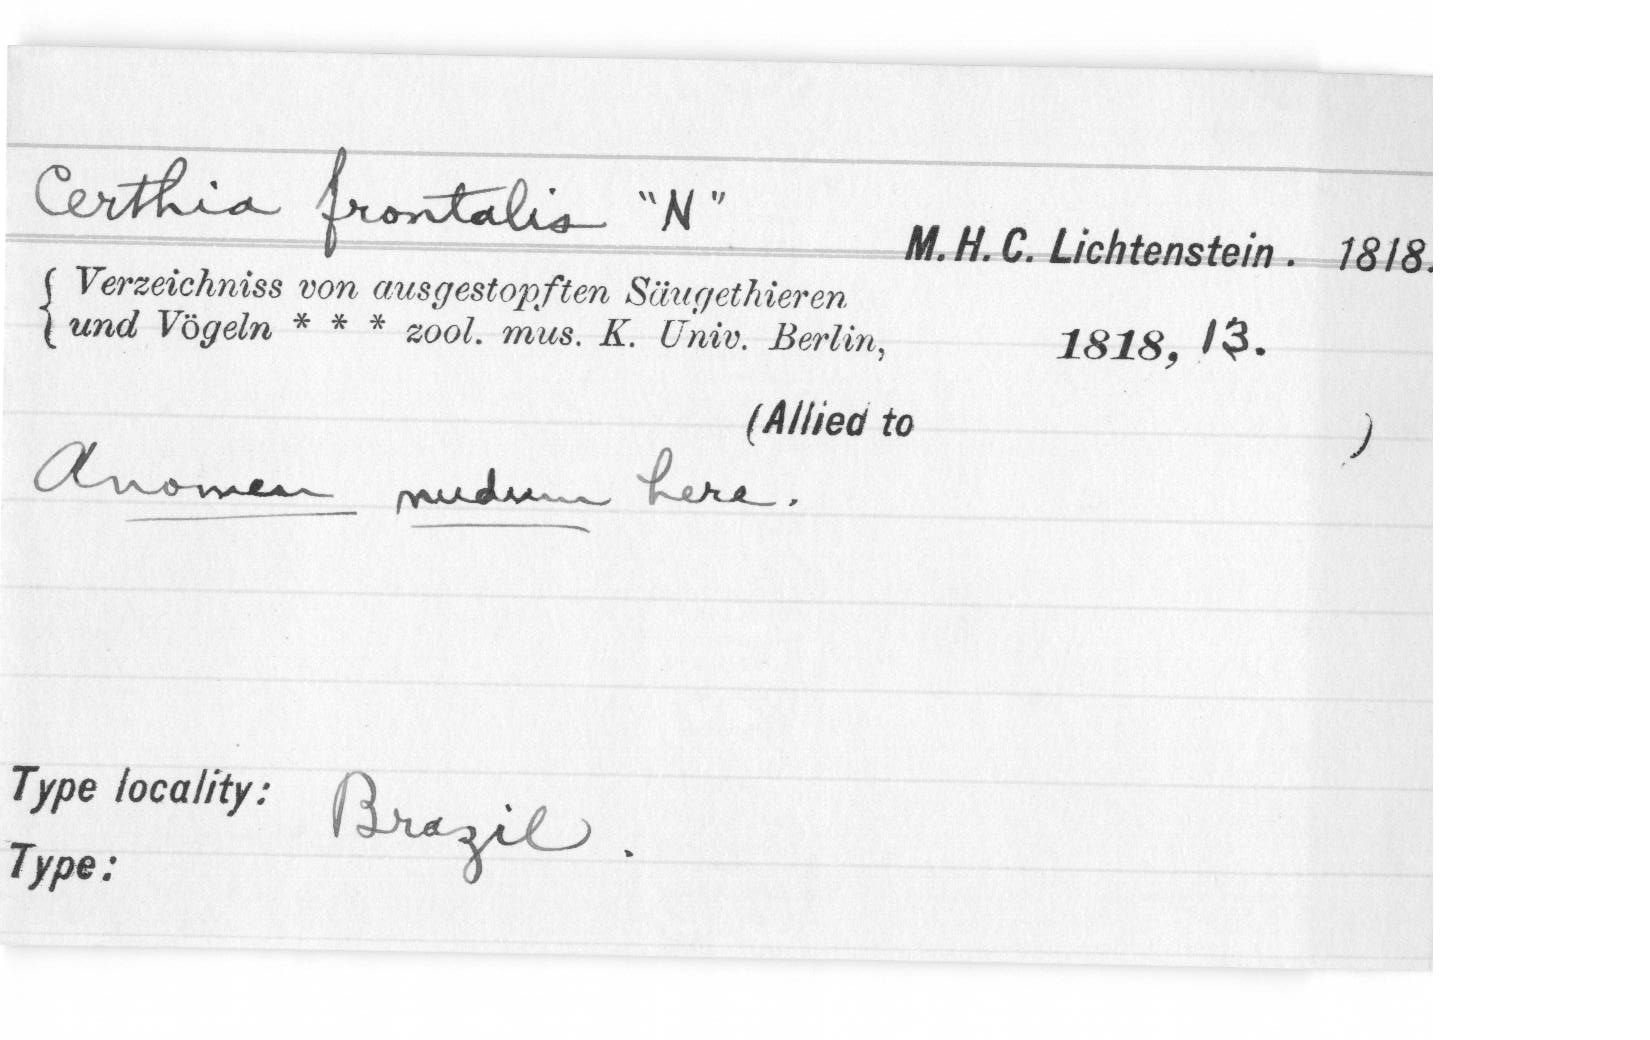 Certhia frontalis "N"
M. H. C. Lichtenstein. 1818.
{ Verzeichniss von ausgestopften Säugethieren
{ und Vögeln * * * zool. mus. K. Univ. Berlin, 1818, 13.
(Allied to )
A nomen nudum here.
Type locality: Brazil.
Type: